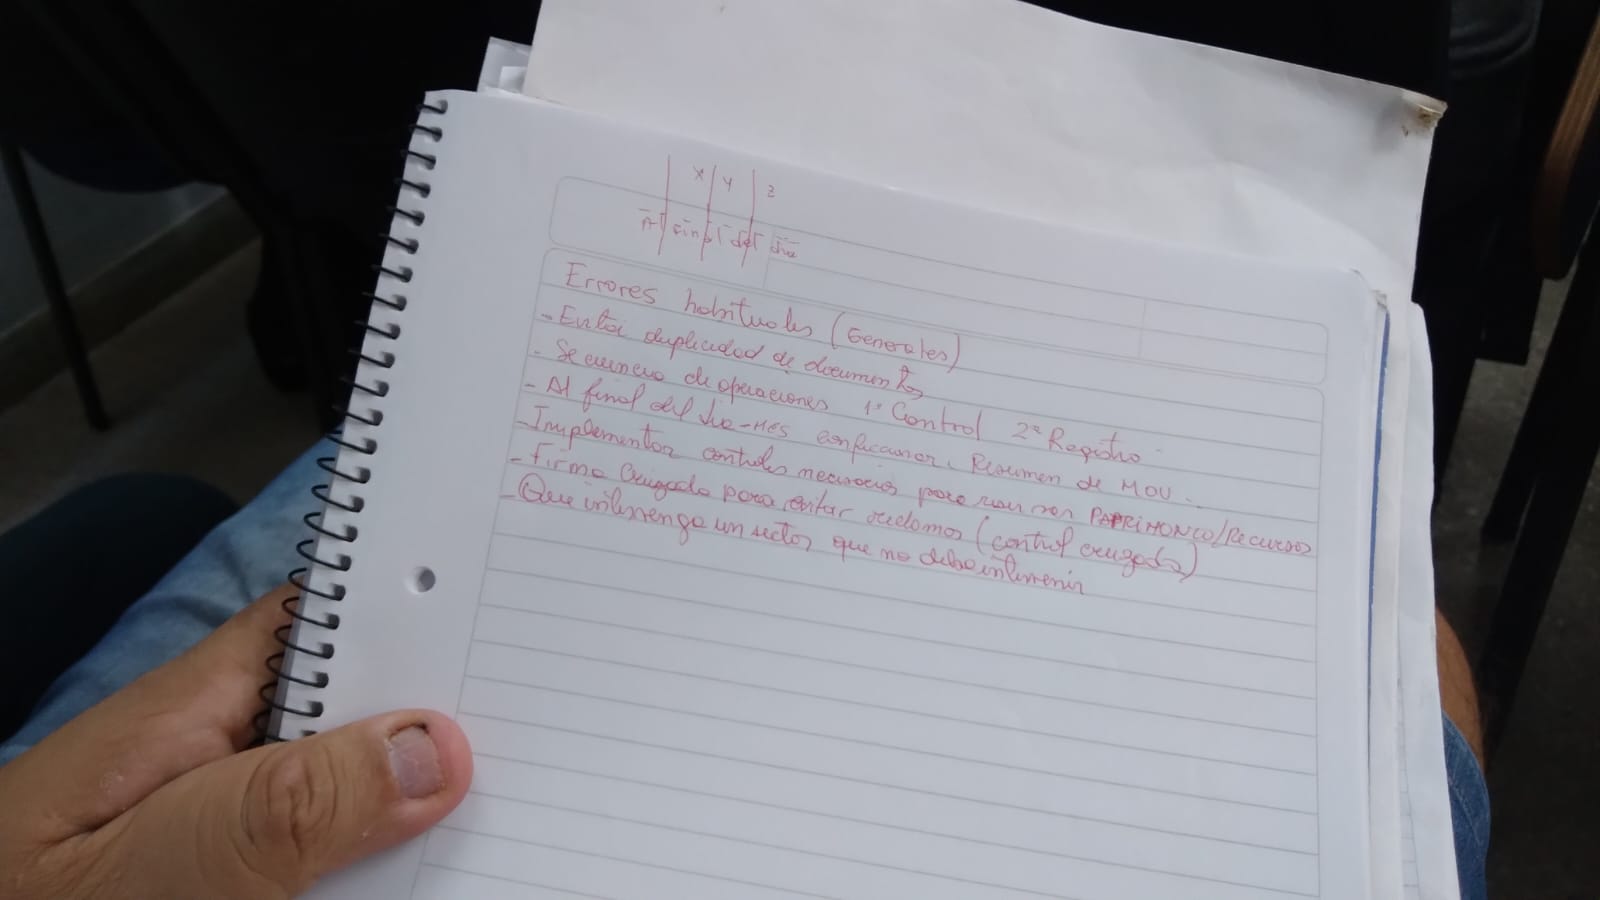 X Y Z
Errores habituales (Generales)
- Evitar duplicidad de documentos
- Secuencia de operaciones 1º Control 2º Registro
- Al final del dia-mes confeccionar Resumen de MOV.
- Implementar controles necesarios para PAPRIMONCO/Recursos
- Firma Cruzada para evitar reclamos (control cruzado)
- Que intervenga un sector que no debe intervenir